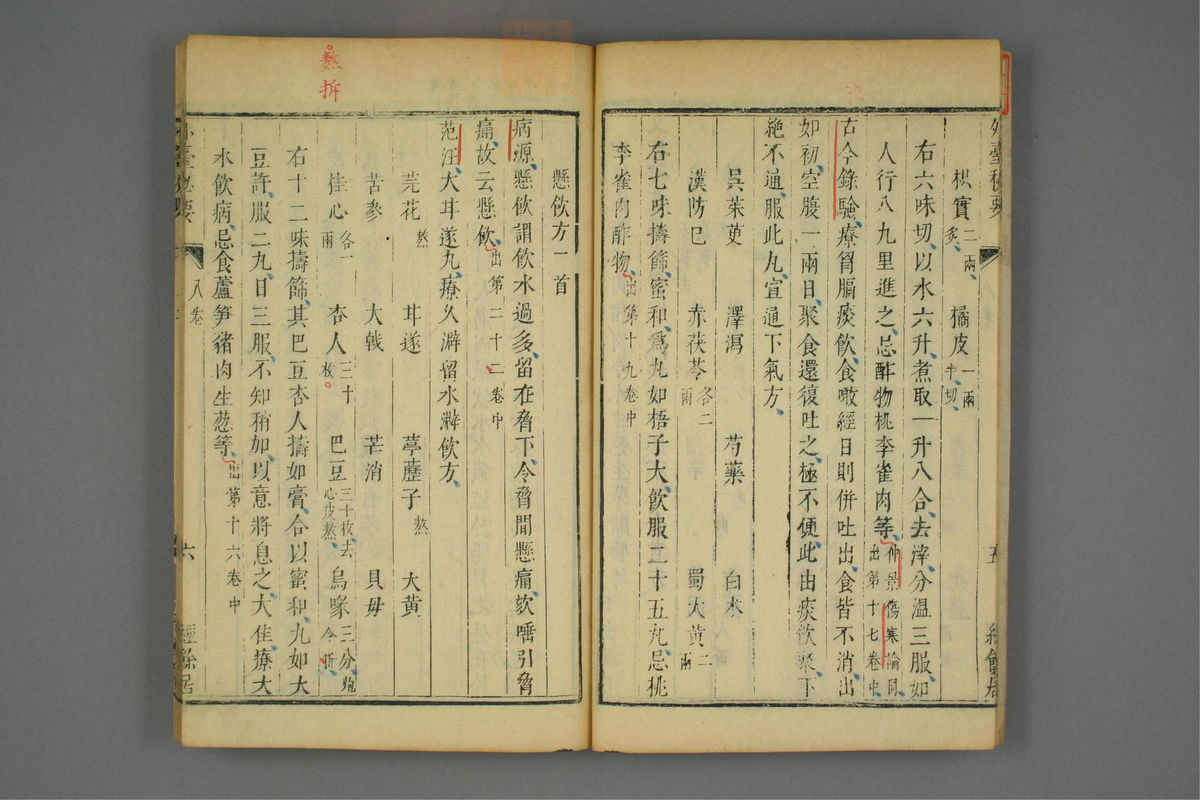 枳實二兩炙 橘皮一兩半切
右六味切以水六升煮取一升八合去滓分溫三服如
人行八九里進之忌酢物桃李雀肉等仲景傷寒論同出第十七卷中
古今錄驗療胷膈痰飲食噉經日則併吐出食皆不消出
如初空腹一兩日聚食還復吐之極不便此由痰飲聚下
絶不通服此丸宣通下氣方
吳茱萸 澤瀉 芍藥 白朮
漢防已 赤茯苓各二兩 蜀大黃二兩
右七味擣篩蜜和為丸如梧子大飲服二十五丸忌桃
李雀肉酢物出第十九卷中
懸飲方一首
病源懸飲謂飲水過多留在脅下令脅間懸痛欬唾引脅
痛故云懸飲出第二十二卷中
范汪大耳遂丸療久澼留水澼飲方
芫花熬 耳遂 葶藶子熬 大黃
苦參 大戟 芒消 貝母
桂心各一兩 杏人三十枚 巴豆三十枚去心皮熬 烏喙三分炮令折
右十二味擣篩其巴豆杏人擣如膏合以蜜和丸如大
豆許服二丸日三服不知稍加以意將息之大佳療大
水飲病忌食蘆笋豬肉生葱等出第十六卷中
外臺秘要
八卷
五
六
經餘居
熬
拆